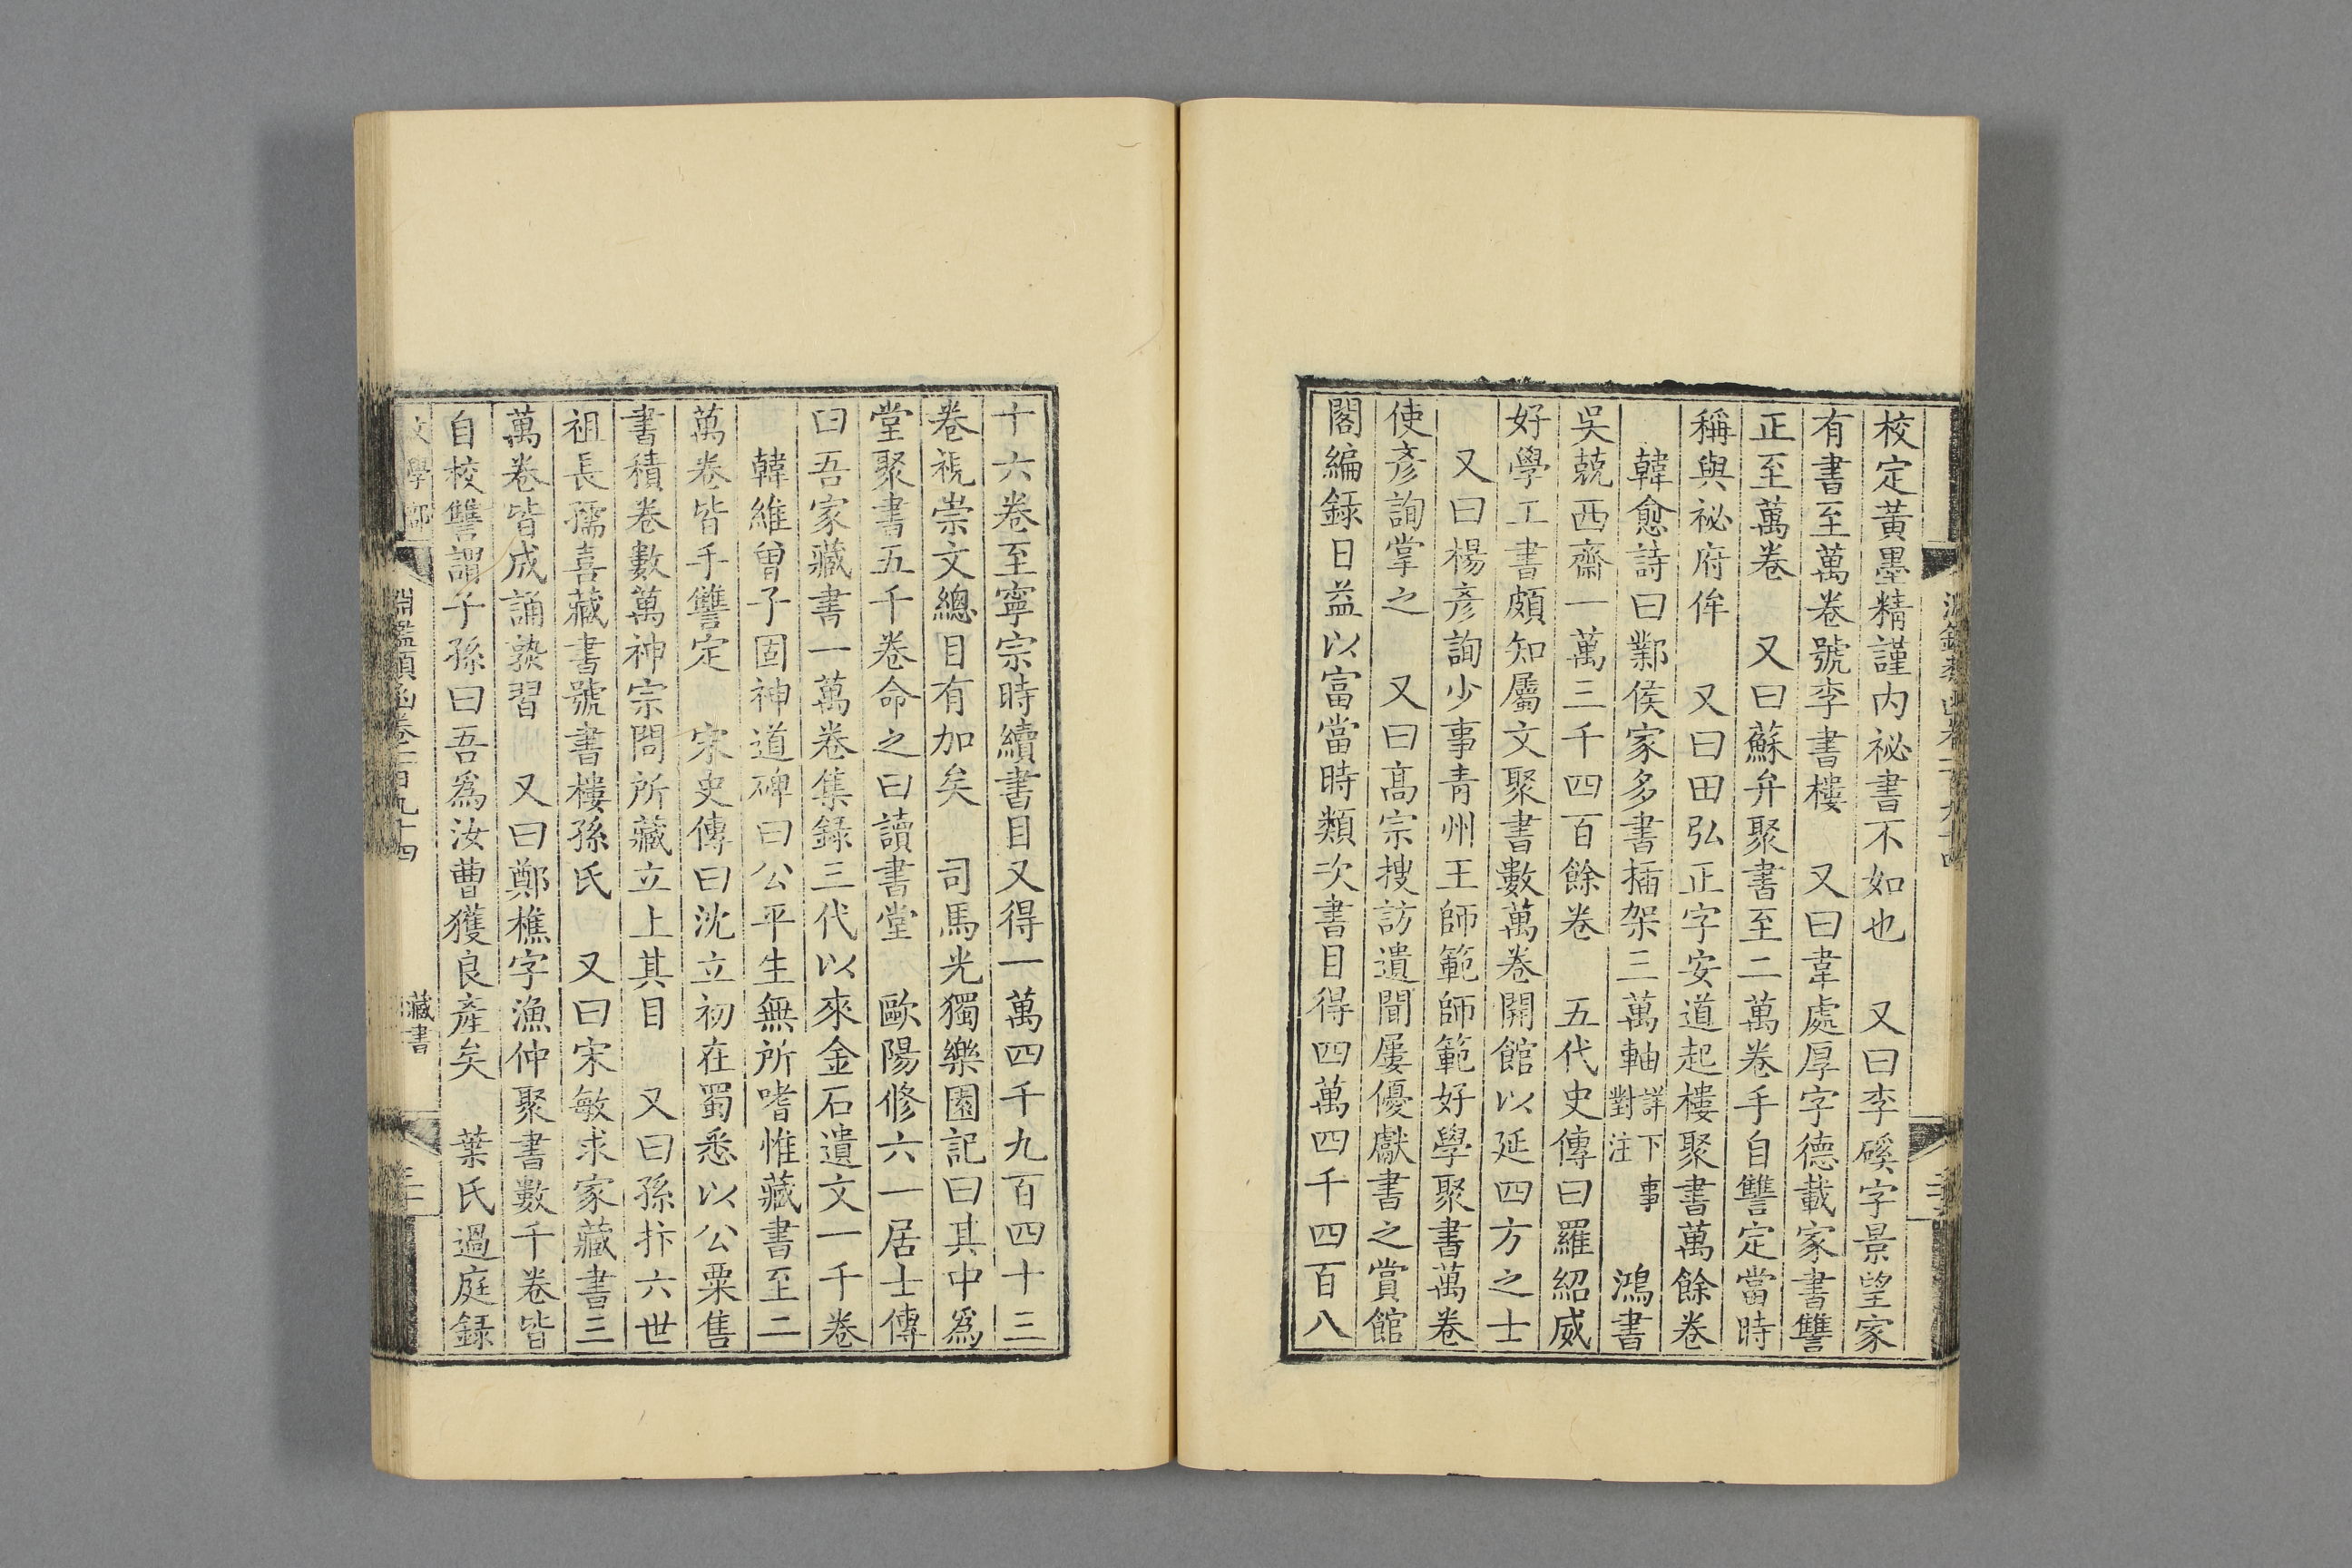 校定黃墨精謹内祕書不如也　又曰李磎字景望家
有書至萬卷號李書樓　又曰韋處厚字德載家書讐
正至萬卷　又曰蘇弁聚書至二萬卷手自讐定當時
稱與祕府侔　又曰田弘正字安道起樓聚書萬餘卷
韓愈詩曰鄴侯家多書插架三萬軸詳下事對注　鴻書
吳兢西齋一萬三千四百餘卷　五代史傳曰羅紹威
好學工書頗知屬文聚書數萬卷開館以延四方之士
又曰楊彥詢少事青州王師範師範好學聚書萬卷
使彥詢掌之　又曰高宗搜訪遺聞屢優獻書之賞館
閣編録日益以富當時類次書目得四萬四千四百八
十六卷至寧宗時續書目又得一萬四千九百四十三
卷視崇文總目有加矣　司馬光獨樂園記曰其中爲
堂聚書五千卷命之曰讀書堂　歐陽修六一居士傳
曰吾家藏書一萬卷集録三代以來金石遺文一千卷
韓維曾子固神道碑曰公平生無所嗜惟藏書至二
萬卷皆手讐定　宋史傳曰沈立初在蜀悉以公粟售
書積卷數萬神宗問所藏立上其目　又曰孫抃六世
祖長孺喜藏書號書樓孫氏　又曰宋敏求家藏書三
萬卷皆成誦熟習　又曰鄭樵字漁仲聚書數千卷皆
自校讐謂子孫曰吾爲汝曹獲良產矣　葉氏過庭録
淵鑑類函卷一百九十四　藏書